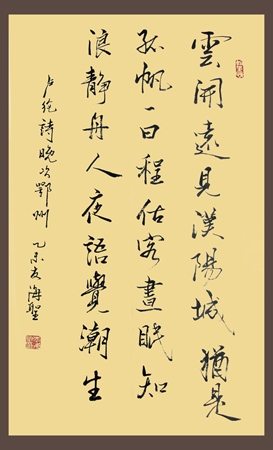 雲開遠見漢陽城猶是
孤帆一日程估客晝眠知
浪静舟人夜語覺潮生
卢纶詩晚次鄂州 乙未友海聖